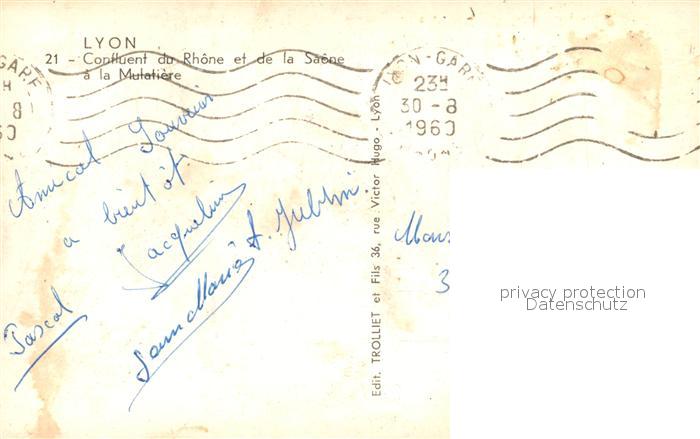 LYON
21 - Confluent du Rhône et de la Saône
à la Mulatière
LYON-GARE
23H
30-8
1960
GARE
H
8
60
Amical Souvenir
a bientôt
Jacqueline
Jean Marie
Pascal
Edit. TROLLIET et Fils 36, rue Victor Hugo - Lyon
Mons
3
privacy protection
Datenschutz